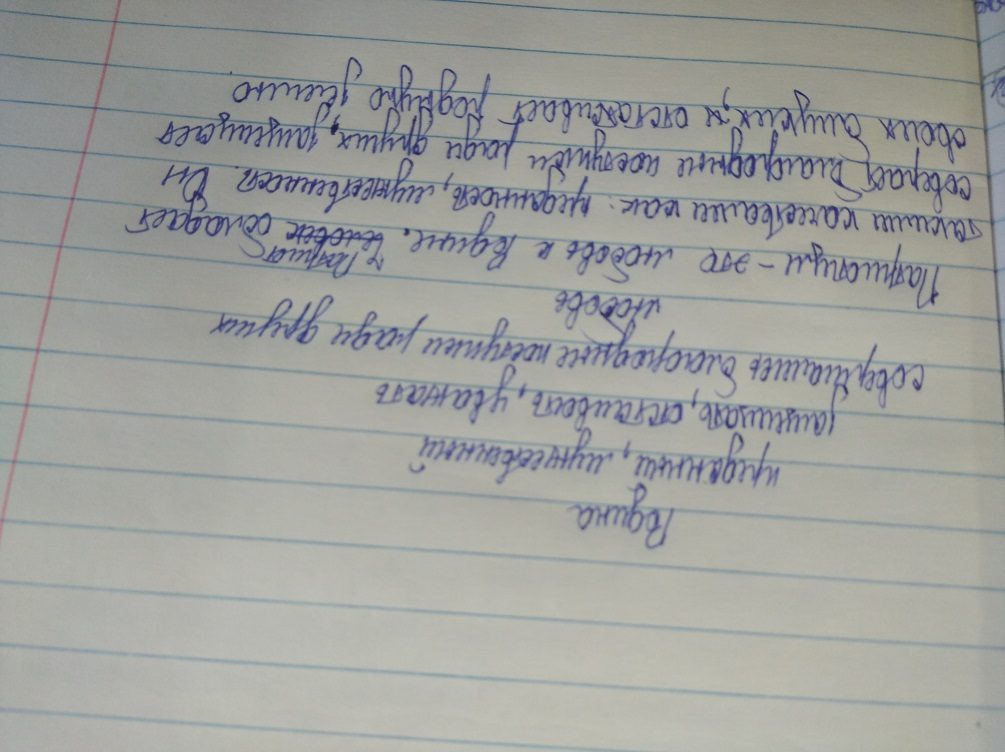 Родина
преданный, мужественный
защищать, отстаивать, уважать
совершать благородные поступки ради других
любовь
Патриотизм – это любовь к Родине. Патриот человек обладает
такими качествами как: преданность, мужественность. Он
соверает благородные поступки ради других, защищает
своих близких, и отстаивает родную землю